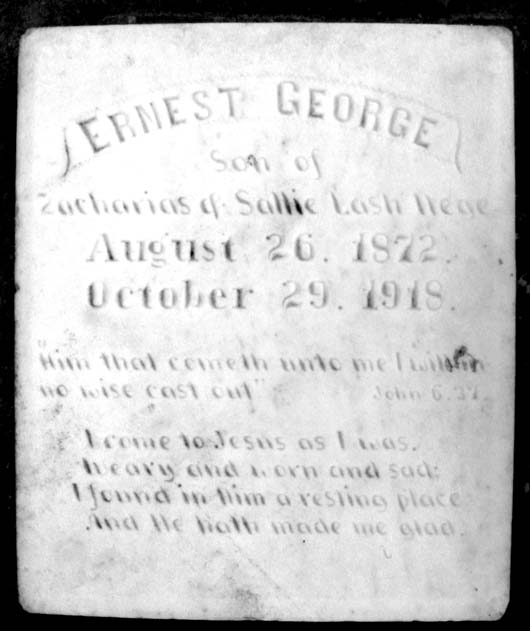 ERNEST GEORGE
Son of
Zacharias & Sallie Lash Hege
August 26. 1872.
October 29. 1918.
"Him that cometh unto me I will in
no wise cast out" John 6.37.
I come to Jesus as I was.
Weary and worn and sad:
I found in him a resting place
And He hath made me glad.